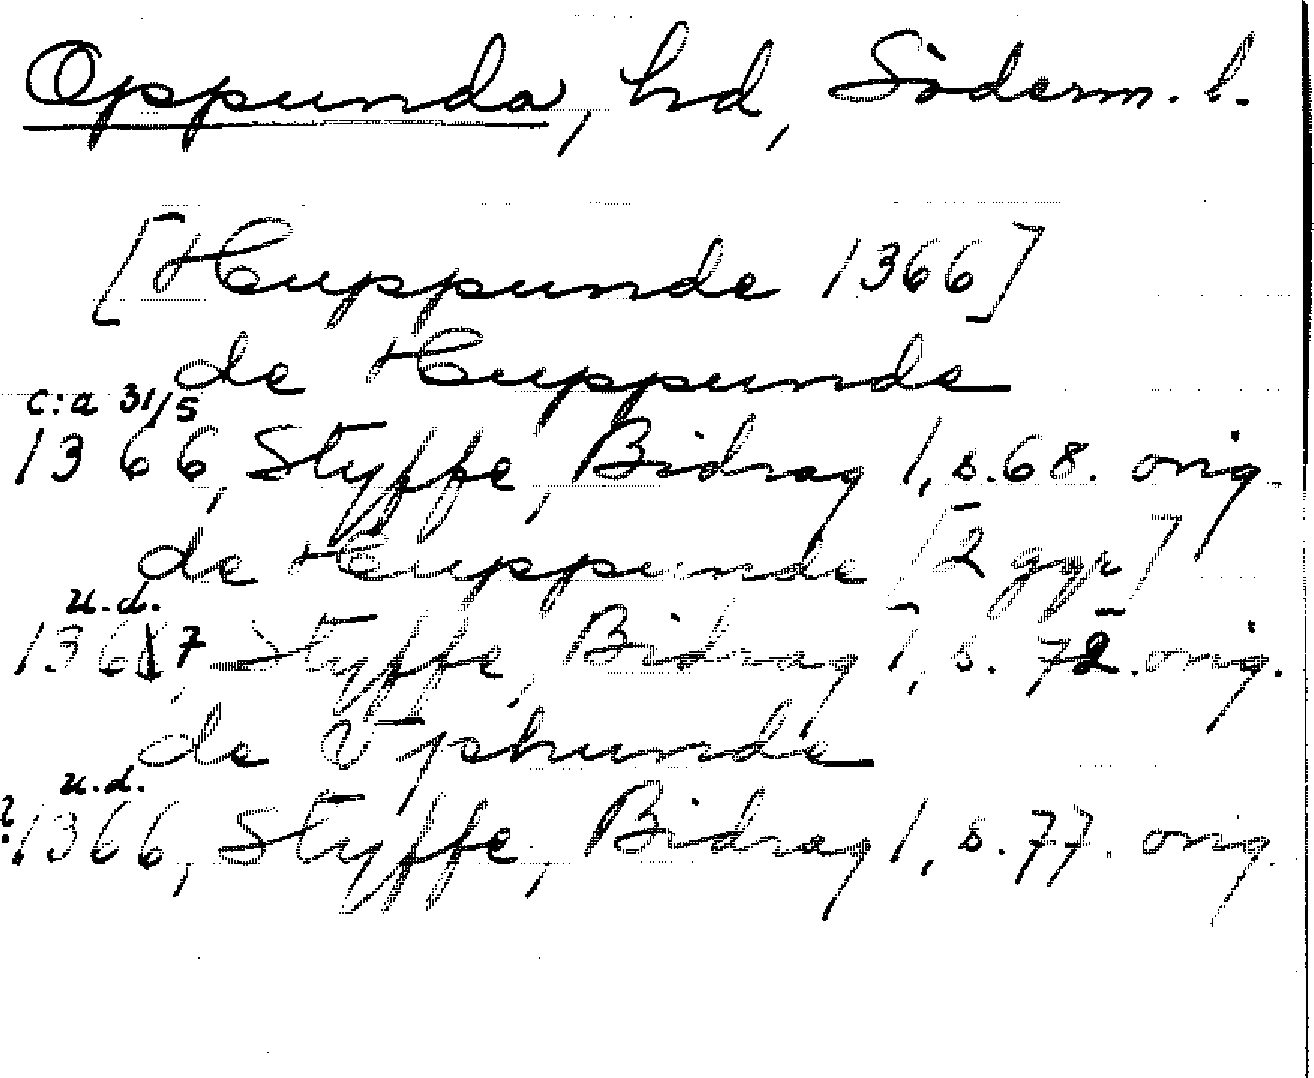 Oppunda, hd, Söderm. l.
[Huppunde 1366]
de Huppunde
c:a 31/5
1366, Styffe, Bidrag 1, s. 68. orig.
de Huppunde [2 ggr]
u.d.
1367, Styffe, Bidrag 1, s. 72. orig.
de Vphunde
u.d.
?1366, Styffe, Bidrag 1, s. 77. orig.